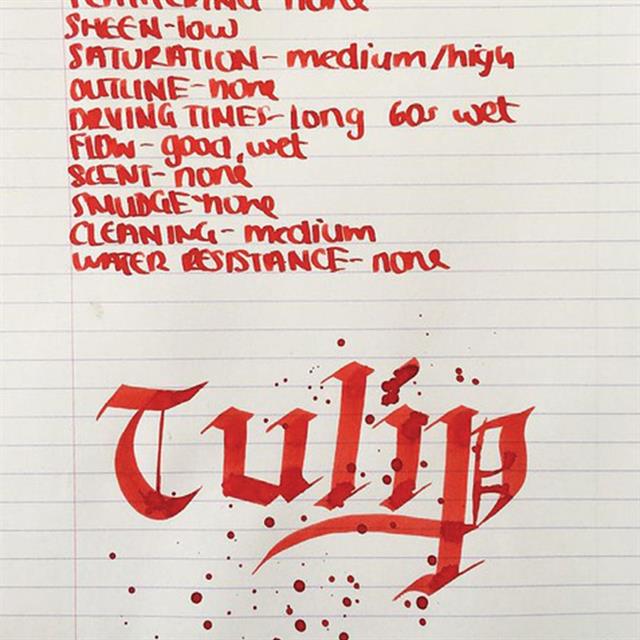 FEATHERING - none
SHEEN-low
SATURATION - medium/high
OUTLINE-none
DRYING TIMES-long 60s wet
FLOW - good, wet
SCENT- none
SMUDGE-none
CLEANING - medium
WATER RESISTANCE- none
Tulip